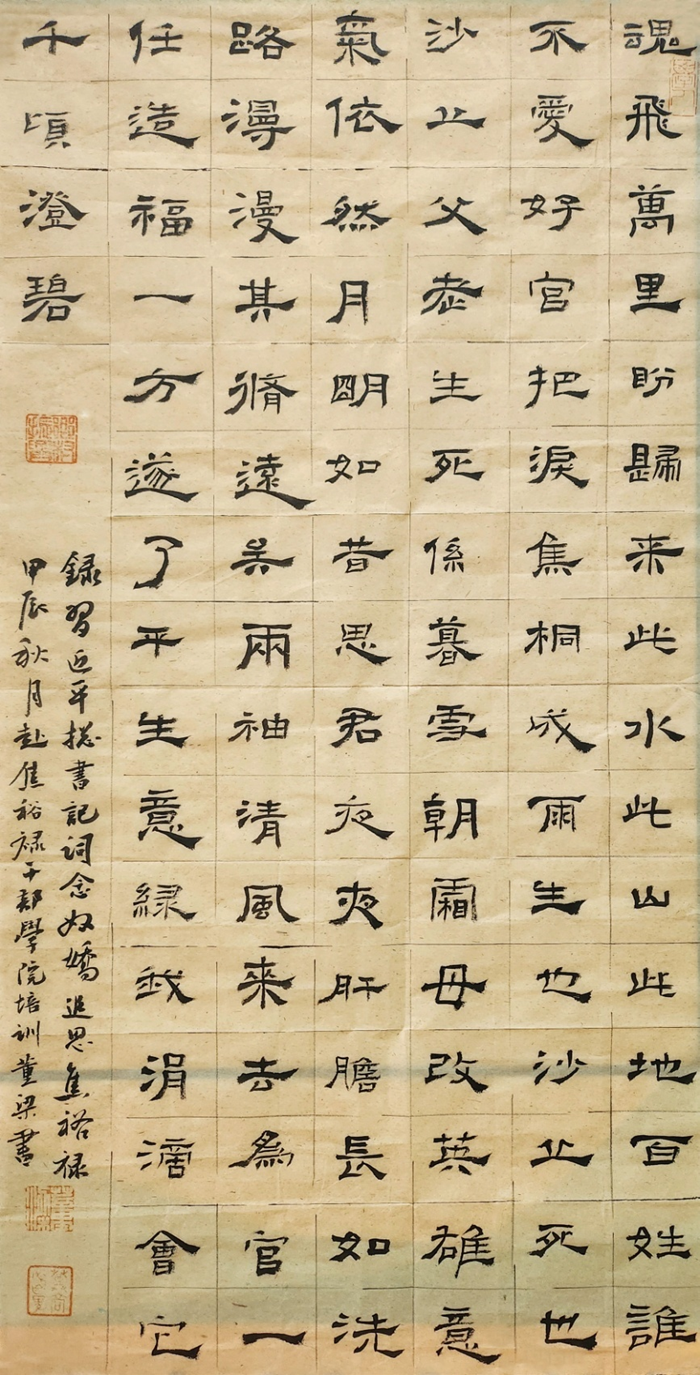 魂飛萬里盼歸来此水此山此地百姓誰
不愛好官把淚焦桐成雨生也沙丘死也
沙丘父老生死係暮雪朝霜毋改英雄意
氣依然月明如昔思君夜夜肝膽長如洗
路漫漫其脩遠矣兩袖清風来去為官一
任造福一方遂了平生意緑我涓滴會它
千頃澄碧
録習近平揔書記詞念奴嬌追思焦裕禄
甲辰秋月赴焦裕禄干部學院培訓董梁書